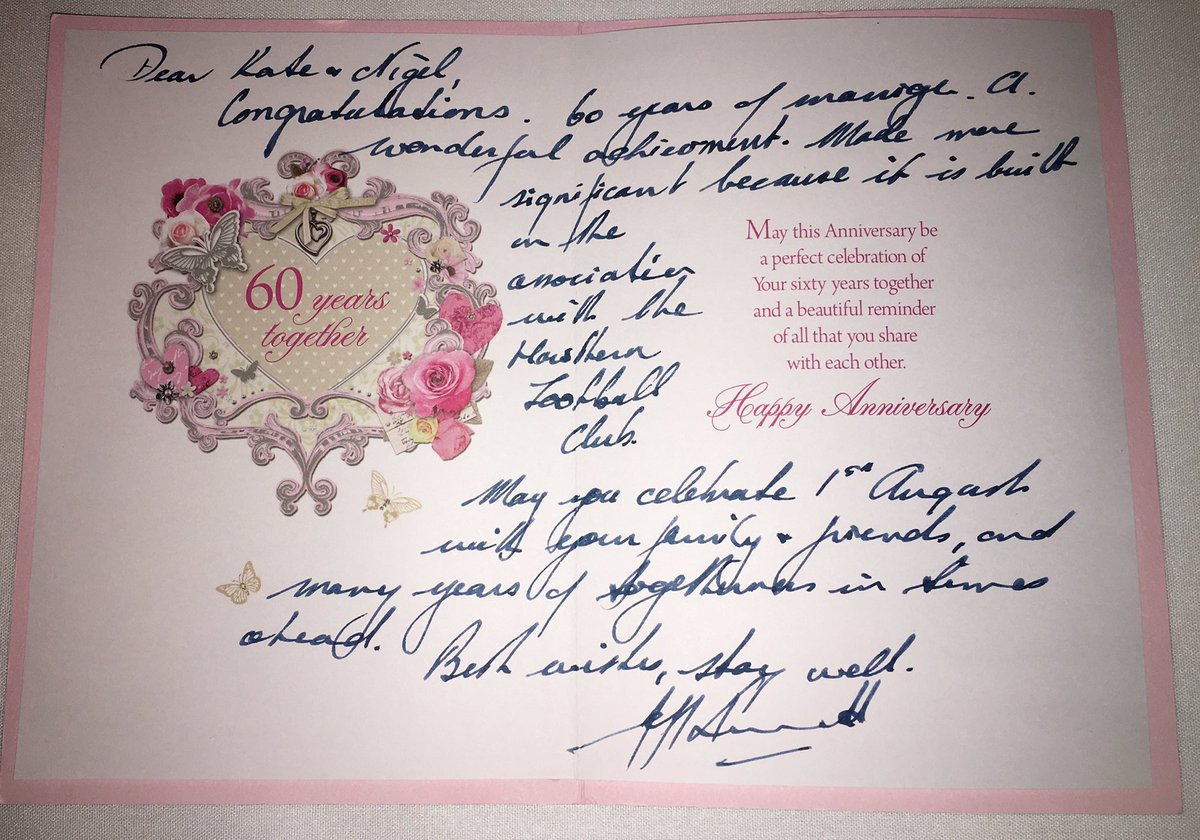 Dear Kate & Nigel,
Congratulations. 60 years of marriage. A
wonderful achievment. Made more
significant because it is built
on the
association
with the
Hawthorn
Football
Club.
60 years
together
May this Anniversary be
a perfect celebration of
Your sixty years together
and a beautiful reminder
of all that you share
with each other.
Happy Anniversary
May you celebrate 1st August
with your family & friends, and
many years of togetherness in times
ahead.
Best wishes, stay well.